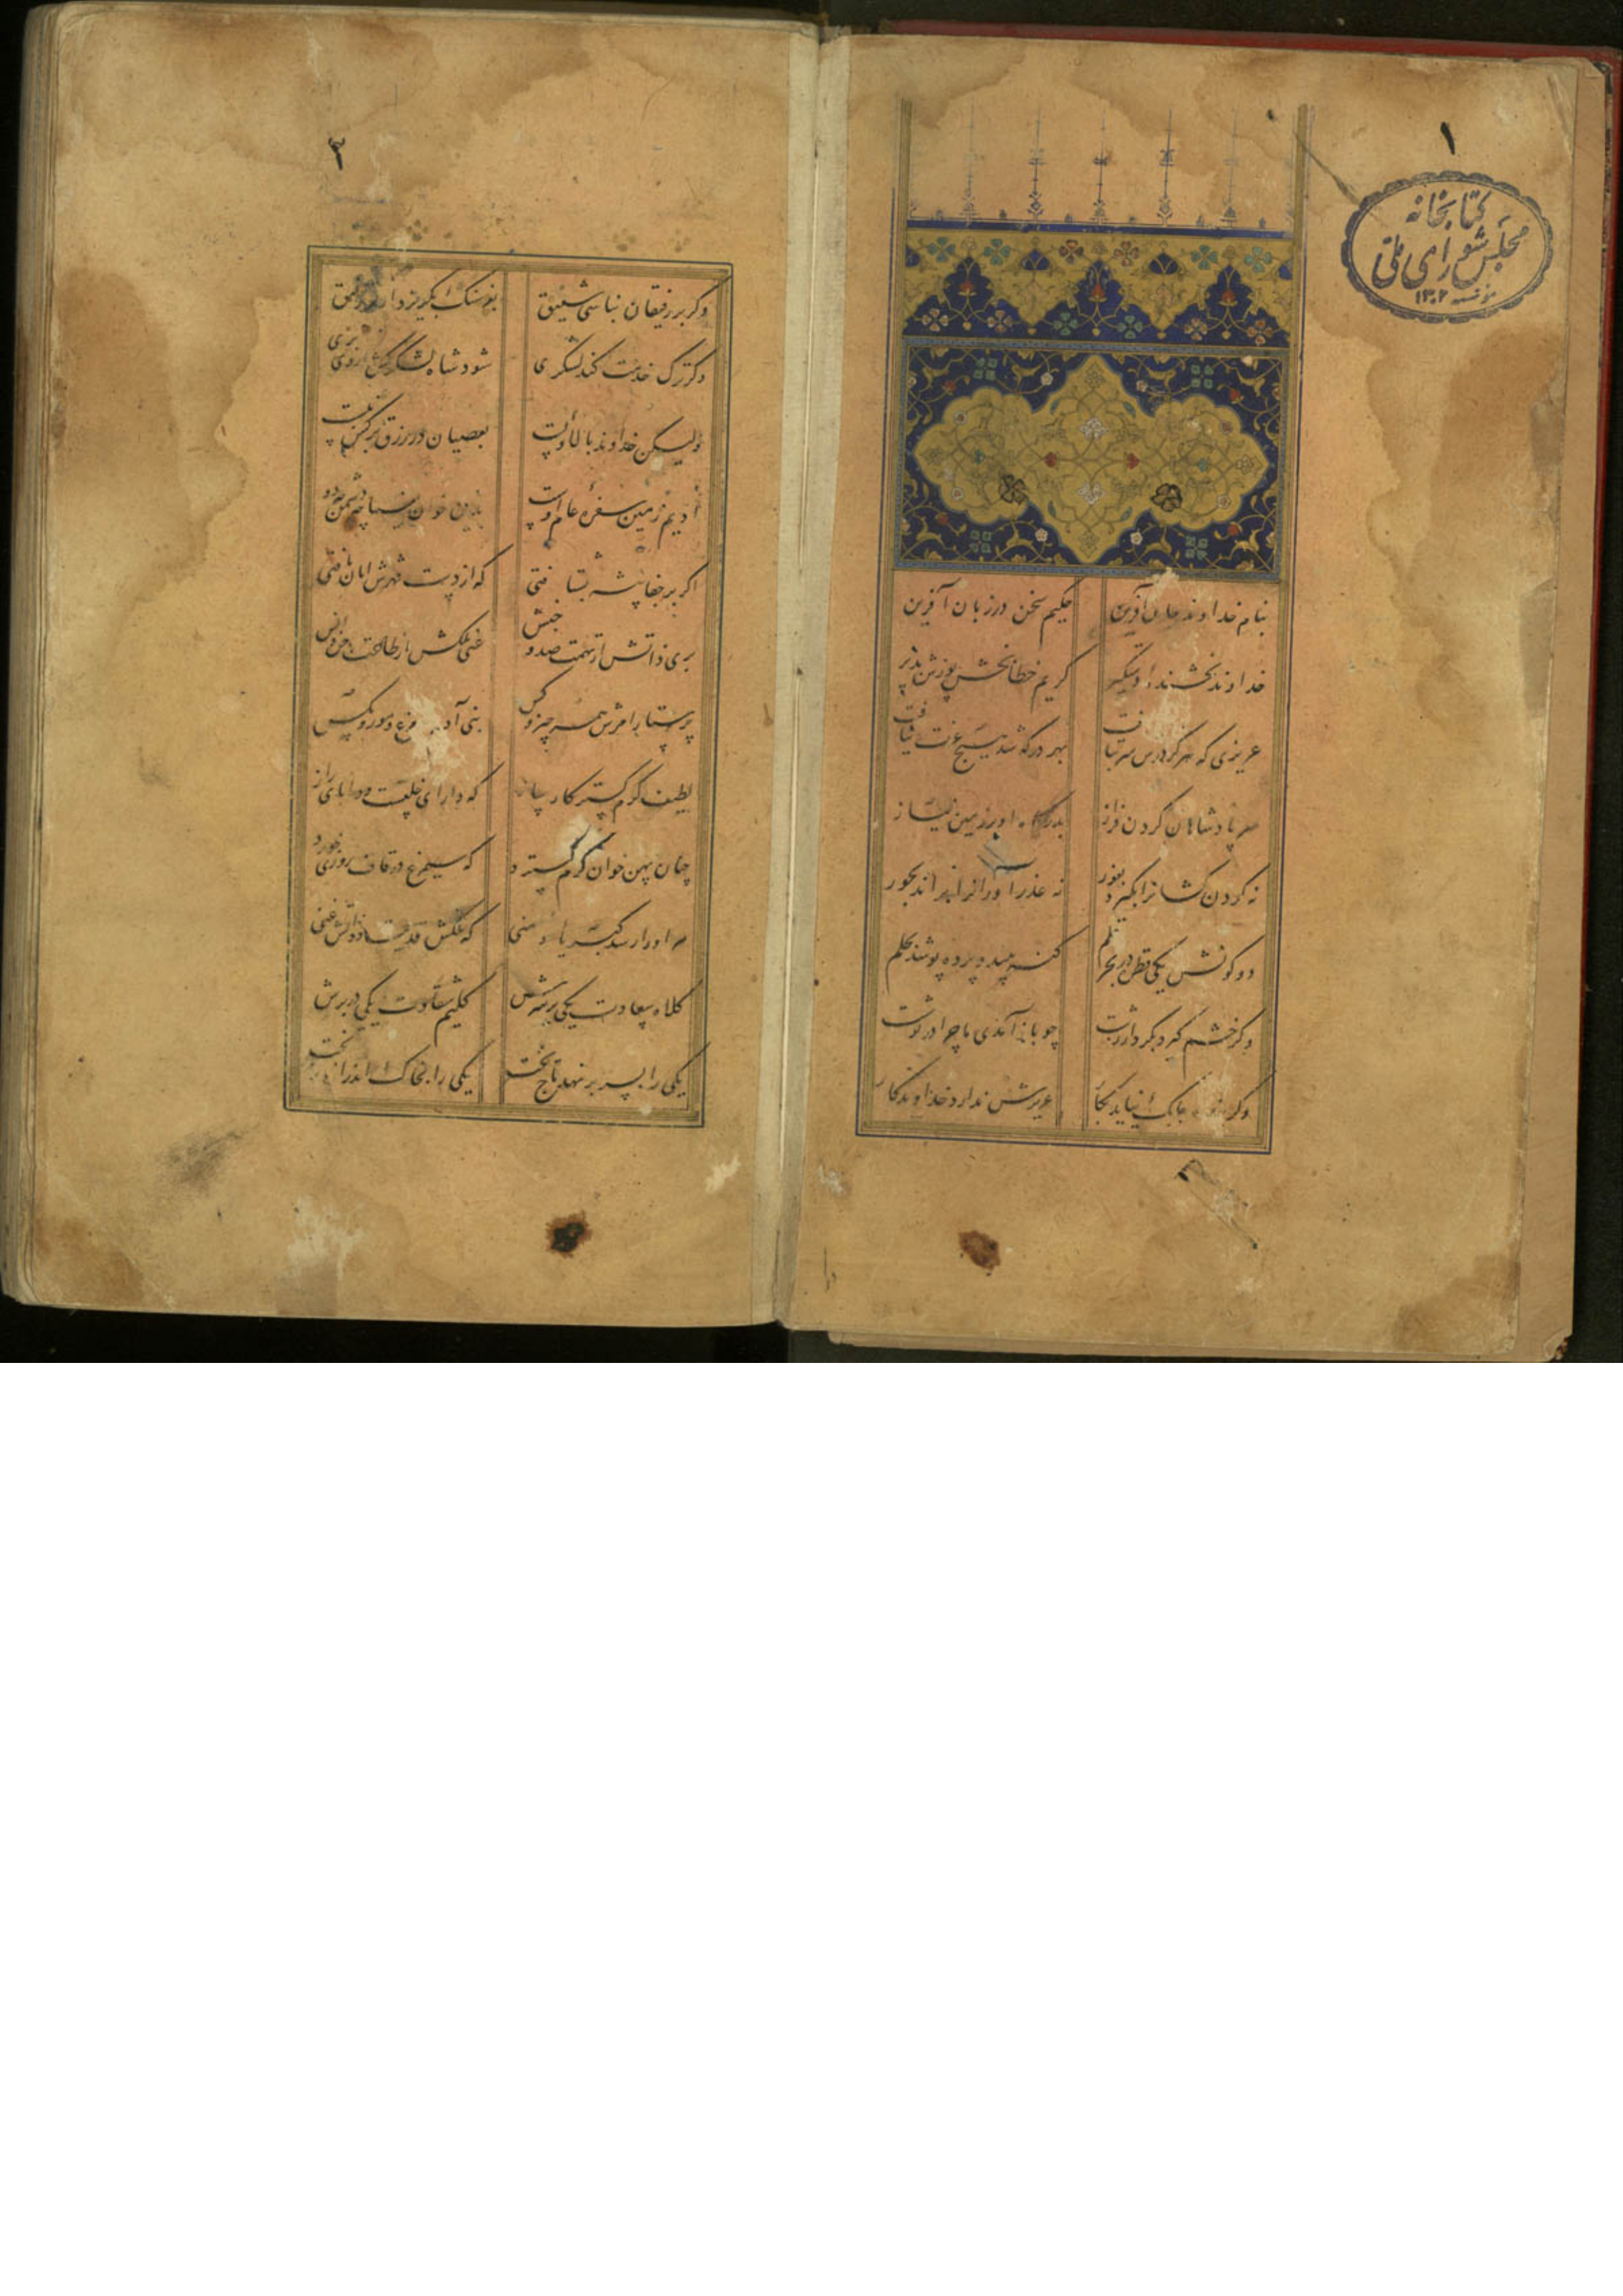 ۱
کتابخانه
مجلس شورای ملی
مؤسسه ۱۳۰۲
بنام خداوند جان آفرین حکیم سخن در زبان آفرین
خداوند بخشنده دستگیر کریم خطابخش پوزش پذیر
عزیزی که هرگز درش سر بتافت بهر در که شد هیچ عزت نیافت
سر پادشاهان گردن فراز بدرگاه او بر زمین نیاز
نه گردن کشانرا بگیرد بفور نه عذرآورانرا براند بجور
دو کونش یکی قطره در بحر علم گنه بیند و پرده پوشد بحلم
وگر خشم گیرد بکردار زشت چو بازآمدی ماجرا درنوشت
وگر بنده چابک نیاید بکار عزیزش ندارد خداوندگار
۲
وگر بر رفیقان نباشی شفیق بفرسنگ بگریزد از تو رفیق
وگر ترک خدمت کند لشکری شود شاه لشکرکش از وی بری
ولیکن خداوند بالا و پست بعصیان در رزق بر کس نبست
ادیم زمین سفره عام اوست برین خوان یغما چه دشمن چه دوست
اگر بر جفاپیشه بشتافتی که از دست قهرش امان یافتی
بری ذاتش از تهمت ضد و جنس غنی ملکش از طاعت جن و انس
پرستار امرش همه چیز و کس بنی آدم و مرغ و مور و مگس
لطیف کرم گستر کارساز که دارای خلقست و دانای راز
چنان پهن خوان کرم گسترد که سیمرغ در قاف روزی خورد
مر او را رسد کبریا و منی که ملکش قدیمست و ذاتش غنی
کلاه سعادت یکی بر سرش گلیم شقاوت یکی در برش
یکی را بسر برنهد تاج بخت یکی را بخاک اندر آرد ز تخت